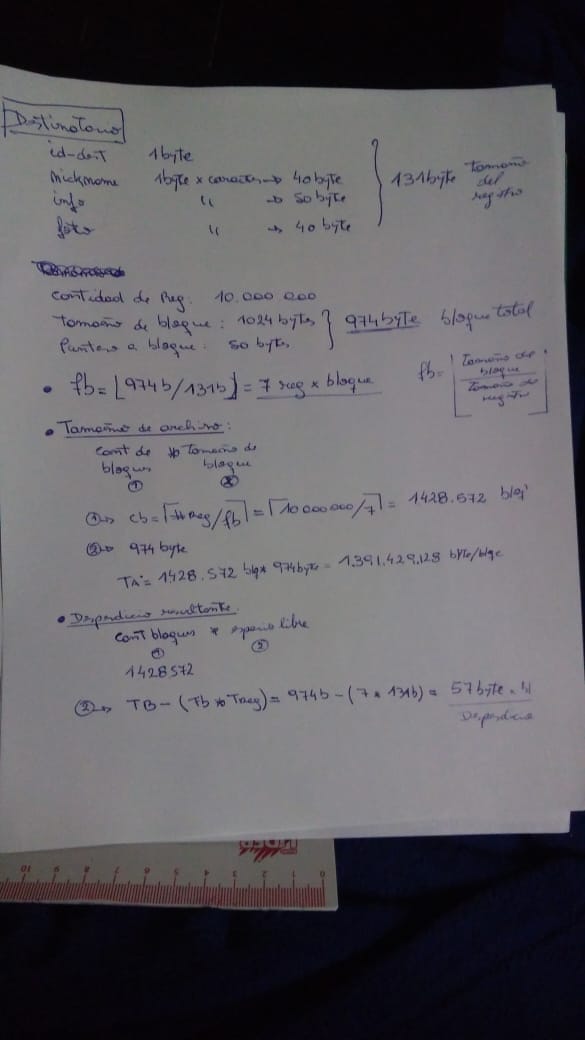 Destinatario
id-dest 1byte
nickname 1byte x caracter → 40byte
info " → 50byte
foto " → 40byte
} 131byte tamaño del registro
Cantidad de Reg: 10.000.000
Tamaño de bloque: 1024 bytes } 974byte bloque total
Puntero a bloque: 50 bytes
• fb= ⌊974b/131b⌋ = 7 reg x bloque
fb= ⌊Tamaño del bloque / Tamaño de registro⌋
• Tamaño de archivo:
Cant de bloques * Tamaño de bloque
① ②
①→ cb = ⌈#Reg/fb⌉ = ⌈10 000 000/7⌉ = 1428.572
②→ 974 byte
TA = 1428.572 blq * 974byte = 1.391.429.128 byte/blqe
• Desperdicio resultante.
Cant bloques * espacio libre
① ②
1428572
②→ TB - (Fb * Treg) = 974b - (7 * 131b) = 57 byte
Desperdicio
0 1 2 3 4 5 6 7 8 9 10